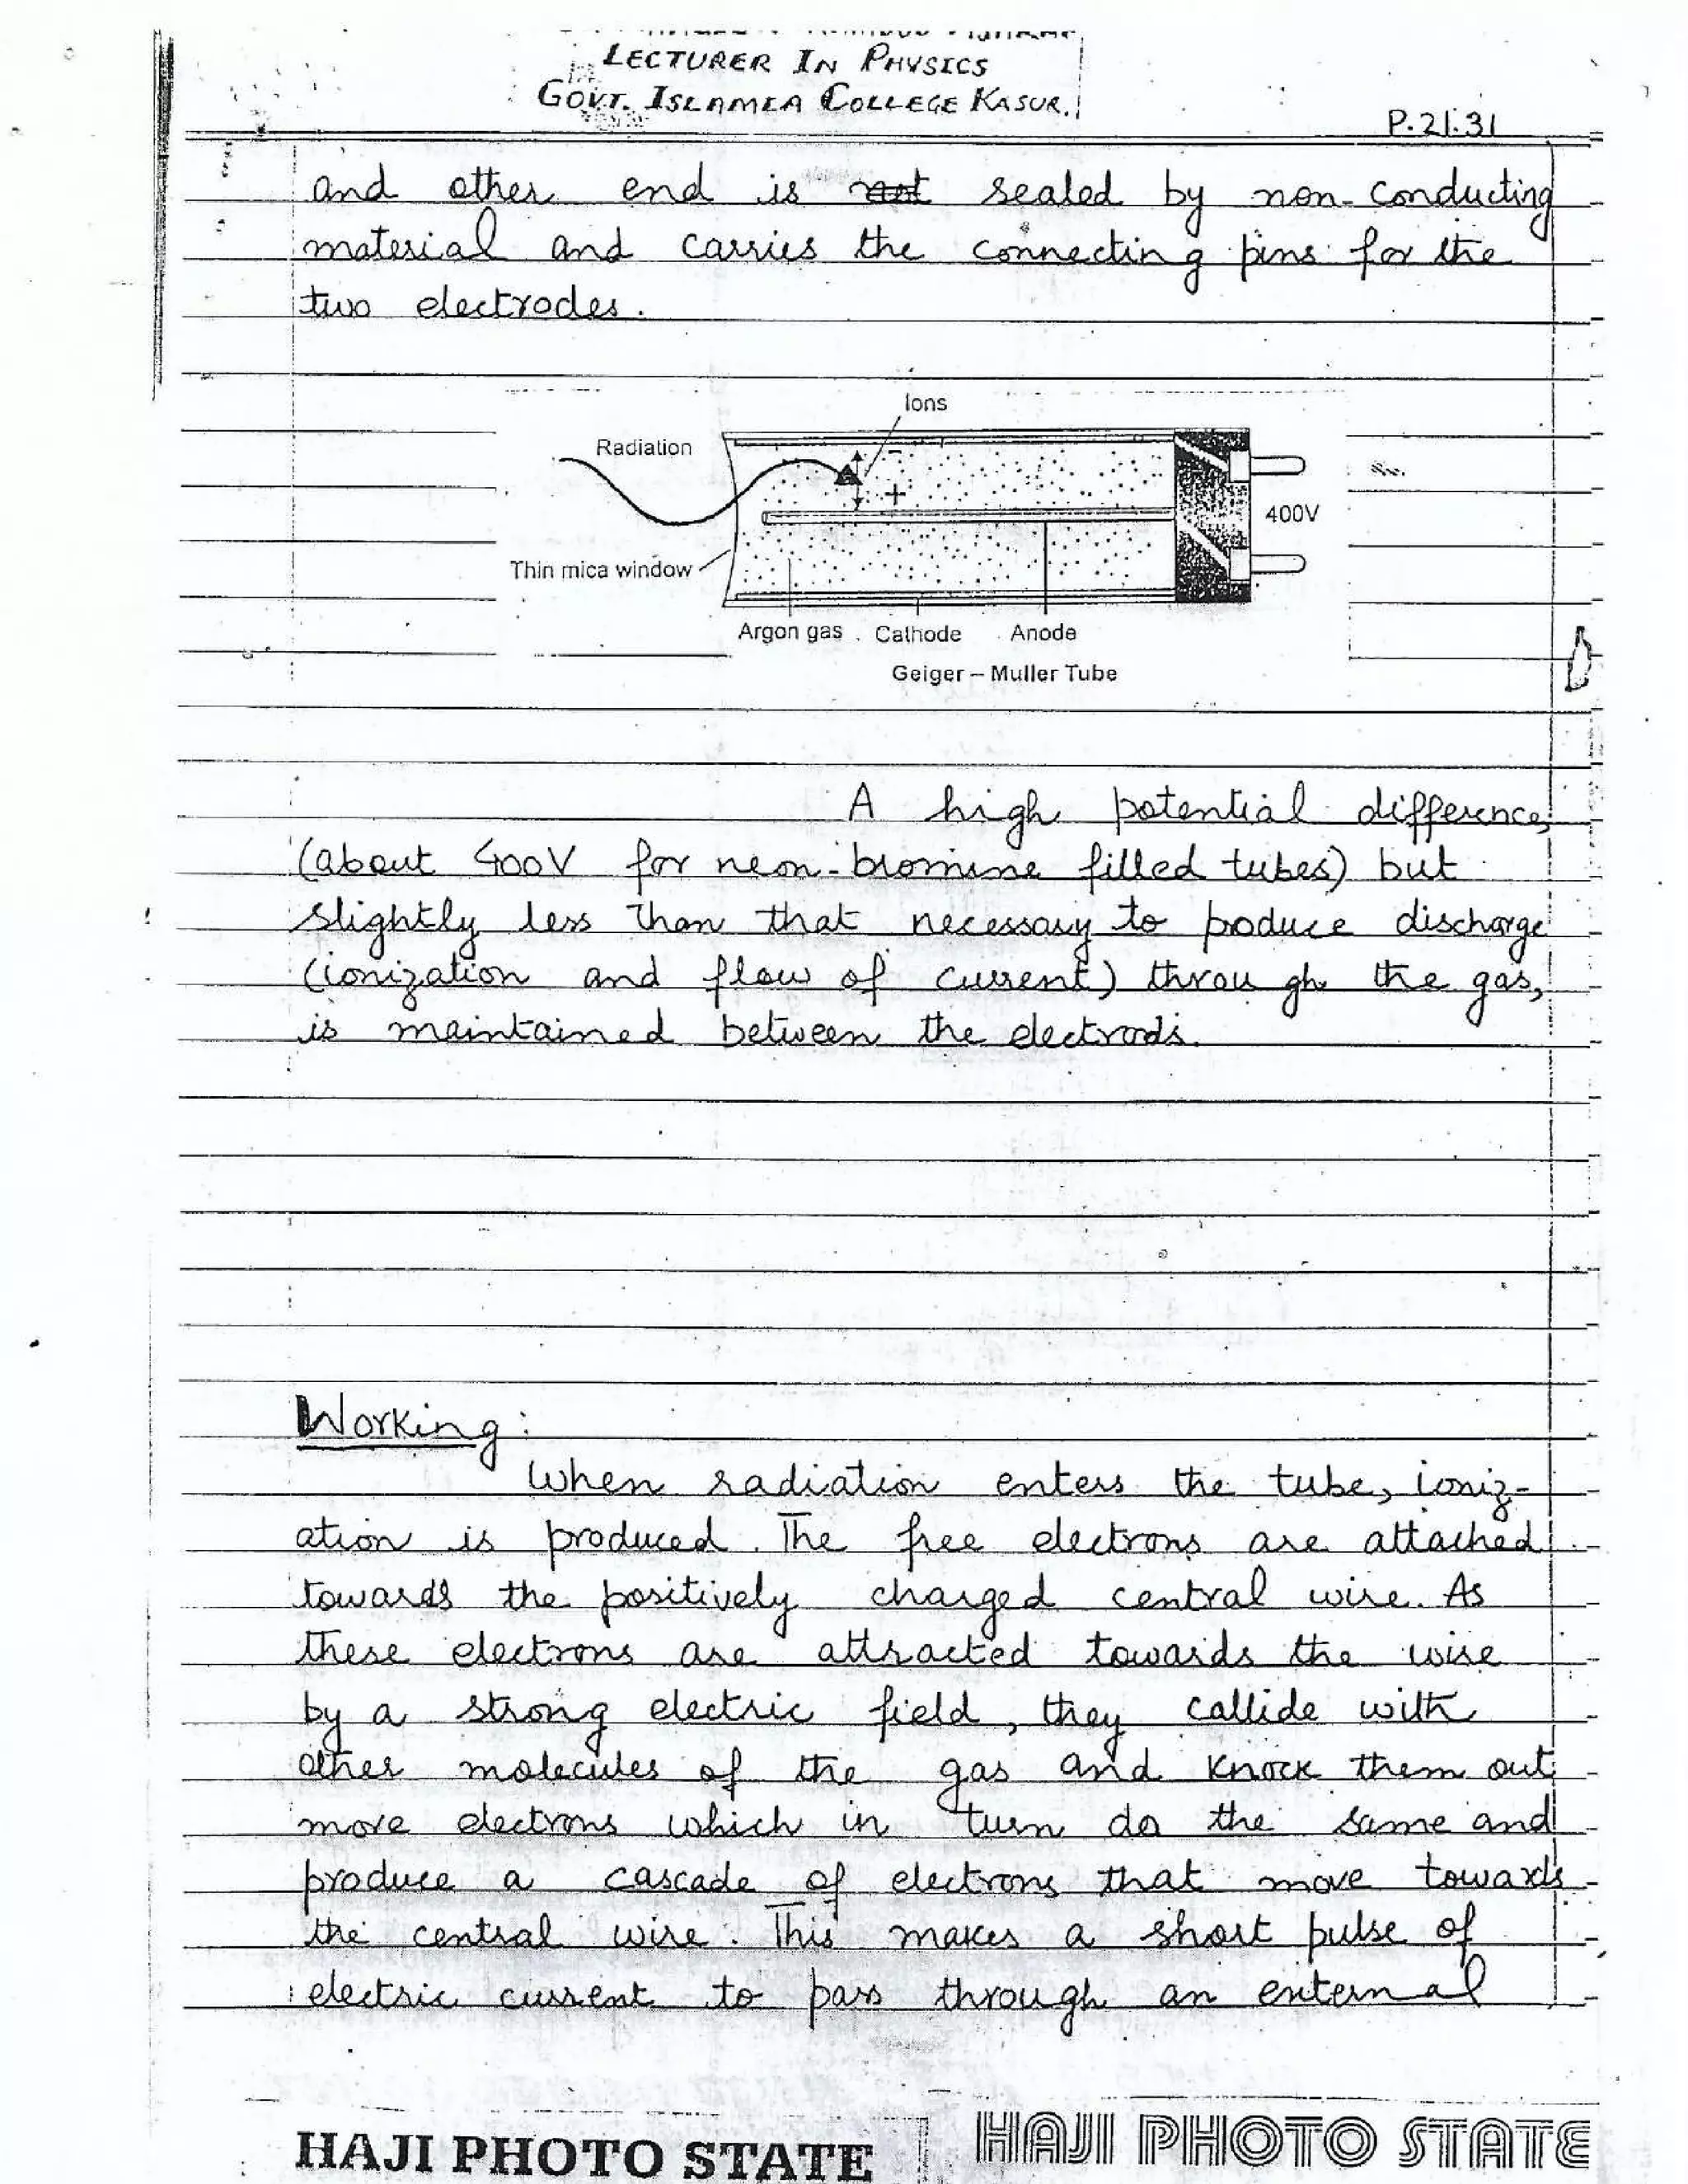 LECTURER IN PHYSICS
GOVT. ISLAMIA COLLEGE KASUR.
P.21.31
and other end is not sealed by non-conducting
material and carries the connecting pins for the
two electrodes.
Ions
Radiation
-
+
400V
Thin mica window
Argon gas Cathode Anode
Geiger – Muller Tube
A high potential difference,
(about 400V for neon-bromine filled tubes) but
slightly less than that necessary to produce discharge
(ionization and flow of current) through the gas,
is maintained between the electrods.
Working:
When radiation enters the tube, ioniz-
ation is produced. The free electrons are attached
towards the positively charged central wire. As
these electrons are attracted towards the wire
by a strong electric field, they callide with
other molecules of the gas and knock them out
more electrons which in turn do the same and
produce a cascade of electrons that move towards
the central wire. This makes a short pulse of
electric current to pass through an enternal
HAJI PHOTO STATE HAJI PHOTO STATE